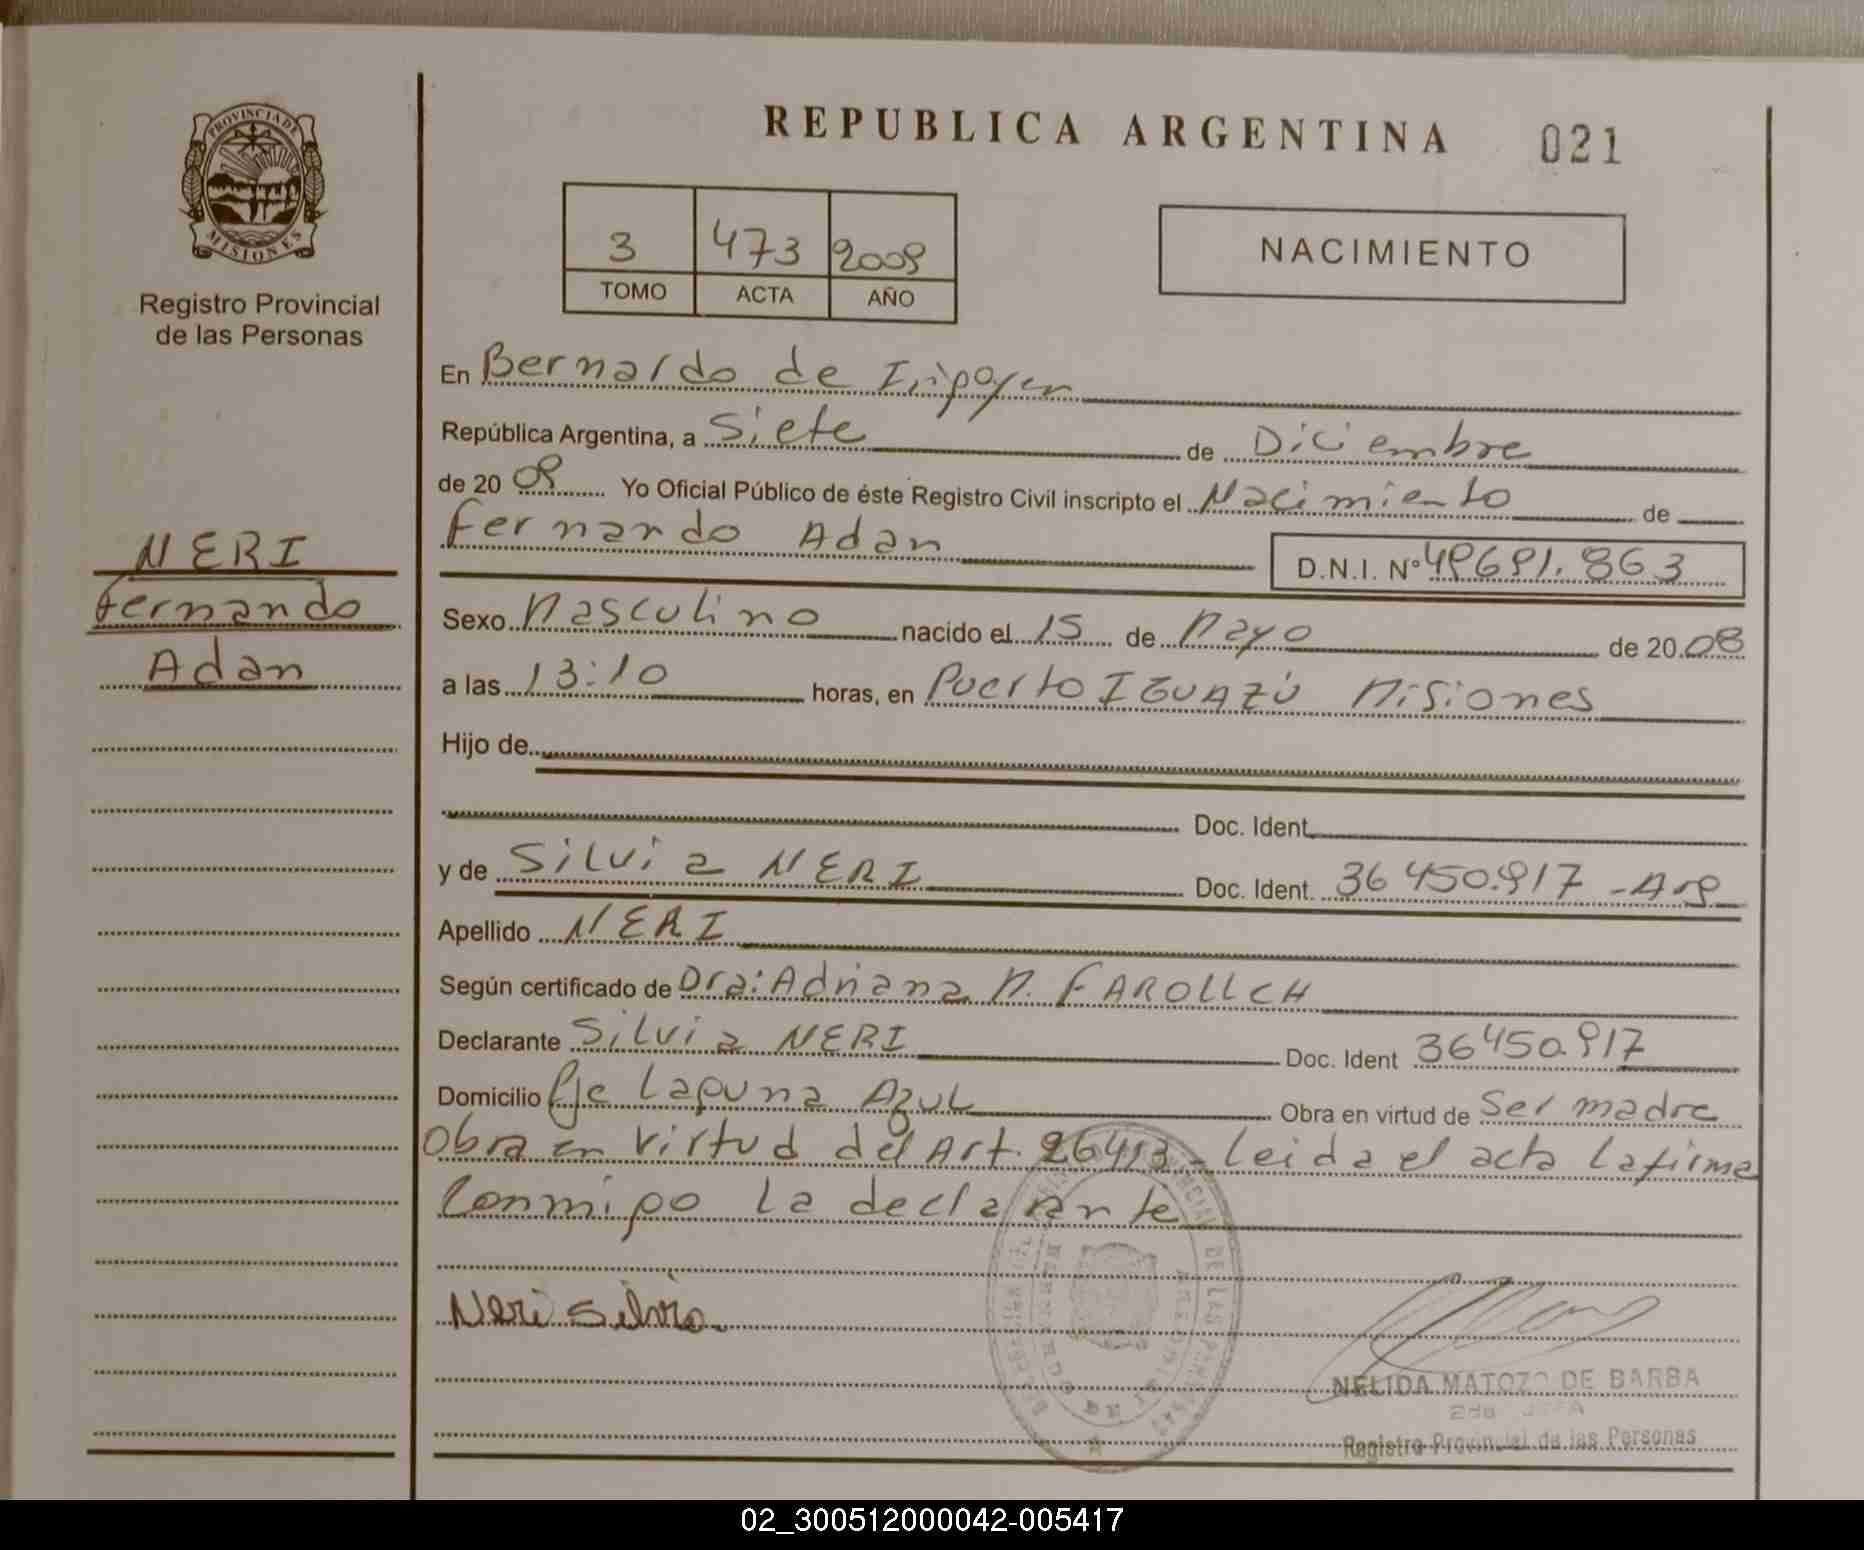 REPUBLICA ARGENTINA 021
PROVINCIA DE
MISIONES
Registro Provincial
de las Personas
3 473 2009
TOMO ACTA AÑO
NACIMIENTO
En Bernardo de Irigoyen
República Argentina, a Siete de Diciembre
de 20 09 Yo Oficial Público de éste Registro Civil inscripto el Nacimiento de
Fernando Adan
D.N.I. Nº 49691.863
NERI
Fernando
Adan
Sexo Masculino nacido el 15 de Mayo de 20 08
a las 13:10 horas, en Puerto IGUAZÚ Misiones
Hijo de
Doc. Ident.
y de Silvia NERI Doc. Ident. 36450.917 - Arg
Apellido NERI
Según certificado de Dra: Adriana M. FAROLLCH
Declarante Silvia NERI Doc. Ident 36450.917
Domicilio Pje Laguna Azul Obra en virtud de Ser madre
Obra en virtud del Art. 26413 - leida el acta la firma
Conmigo la declarante
Neri Silvia.
NELIDA MATOZO DE BARBA
2da JEFA
Registro Provincial de las Personas
02_300512000042-005417